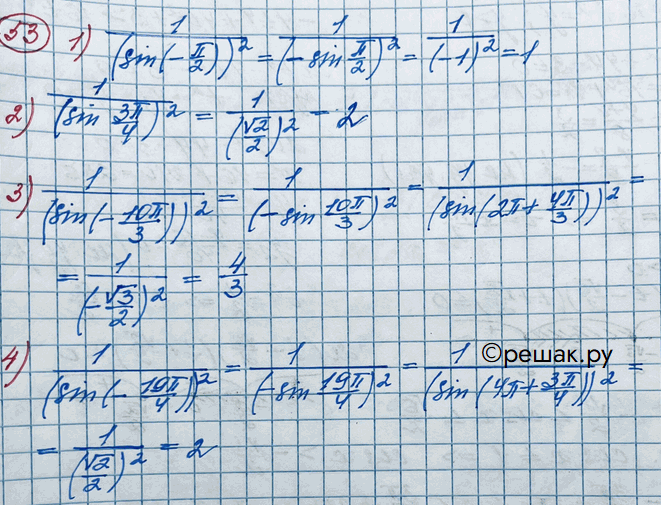 53 1) 1/(sin(-π/2))² = 1/(-sin π/2)² = 1/(-1)² = 1
2) 1/(sin 3π/4)² = 1/(√2/2)² - 2
3) 1/(sin(-10π/3))² = 1/(-sin 10π/3)² = 1/(sin(2π+4π/3))² =
= 1/(-√3/2)² = 4/3
©решак.ру
4) 1/(sin(-19π/4))² = 1/(-sin 19π/4)² = 1/(sin(4π+3π/4))² =
= 1/(√2/2)² = 2